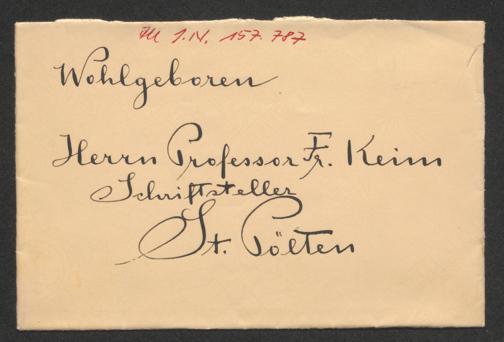 H I.N. 157.787
Wohlgeboren
Herrn Professor Fr. Keim
Schriftsteller
St. Pölten